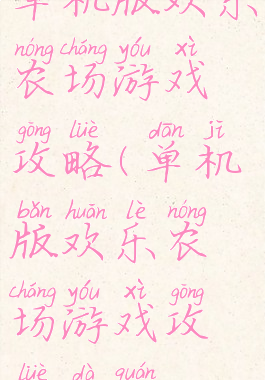 单机版欢乐
nóng chǎng yóu xì
农场游戏
gōng lüè dān jī
攻略(单机
bǎn huān lè nóng
版欢乐农
chǎng yóu xì gōng
场游戏攻
lüè dà quán